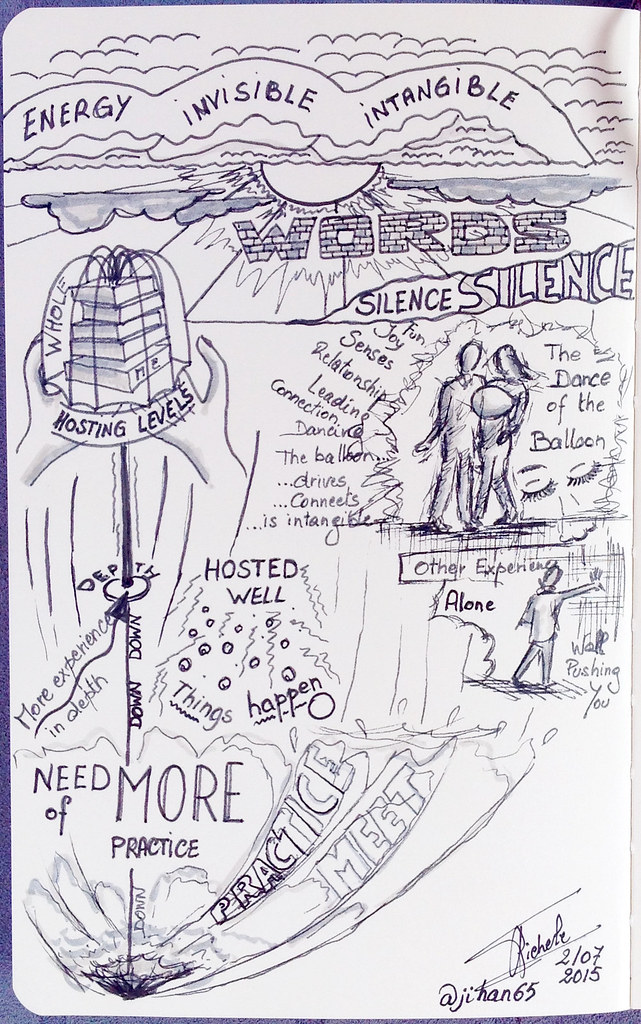 ENERGY INVISIBLE INTANGIBLE
WORDS
SILENCE SILENCE
WHOLE
ME
HOSTING LEVELS
Joy Fun
Senses
Relationship
Leading
Connection
Dancing
The balloon...
...drives
...Connects
...is intangible
The
Dance
of the
Balloon
DEPTH
More experience
in depth
DOWN
DOWN
HOSTED
WELL
Things happen
Other Experience
Alone
Wall
Pushing
You
NEED MORE
of
PRACTICE
DOWN
PRACTICE
MEET
2/07
2015
@jihan65